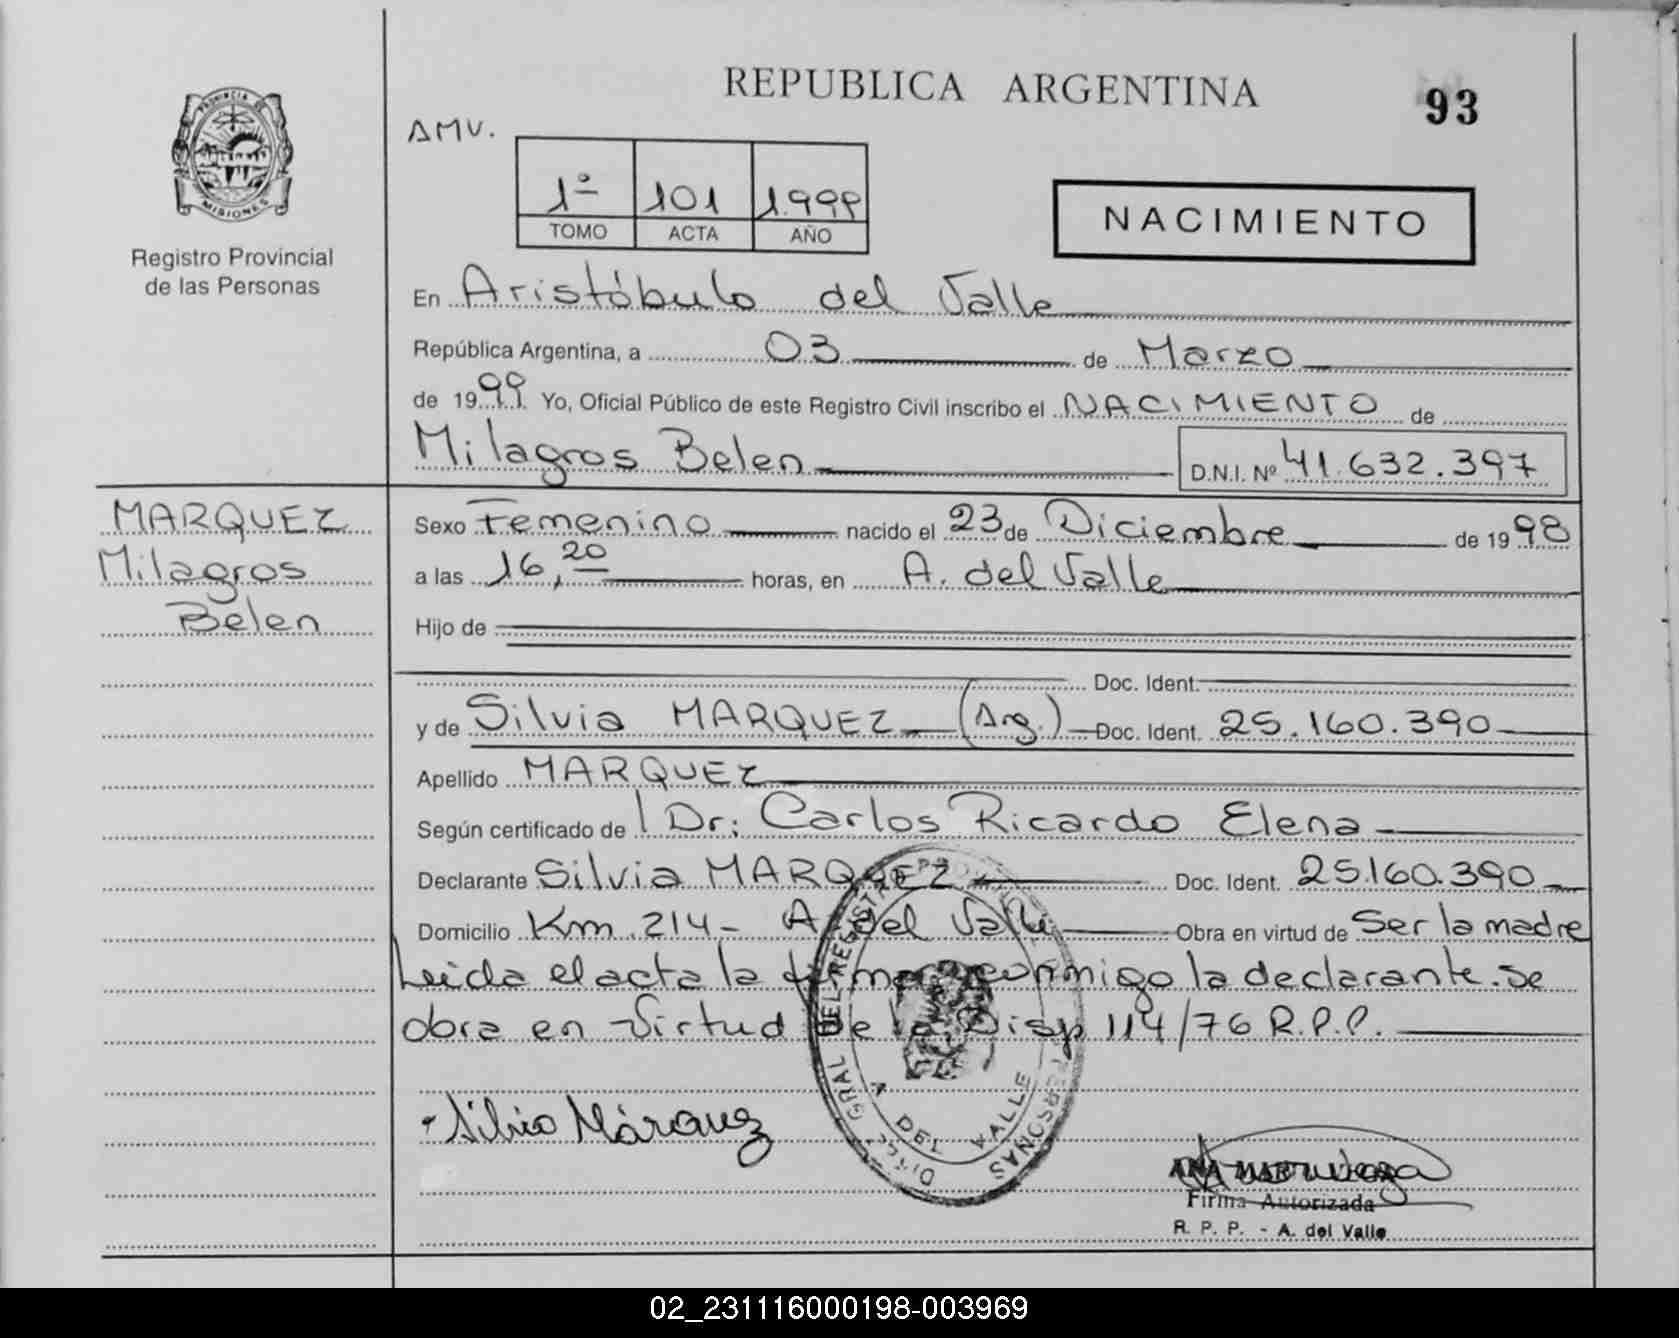 REPUBLICA ARGENTINA
93
AMV.
PROVINCIA DE
MISIONES
Registro Provincial
de las Personas
1º 101 1.999
TOMO ACTA AÑO
NACIMIENTO
En Aristóbulo del Valle
República Argentina, a 03 de Marzo
de 1999 Yo, Oficial Público de este Registro Civil inscribo el NACIMIENTO de
Milagros Belen D.N.I. Nº 41.632.397
MARQUEZ
Milagros
Belen
Sexo Femenino nacido el 23 de Diciembre de 1998
a las 16,20 horas, en A. del Valle
Hijo de
Doc. Ident.
y de Silvia MARQUEZ (Arg.) Doc. Ident. 25.160.390
Apellido MARQUEZ
Según certificado de Dr: Carlos Ricardo Elena
Declarante Silvia MARQUEZ Doc. Ident. 25.160.390
Domicilio Km. 214 - A. del Valle Obra en virtud de Ser la madre
Leida el acta la firma conmigo la declarante. se
obra en Virtud de la Disp 114/76 R.P.P.
GRAL DEL REGISTRO PERSONAS
A DEL VALLE
Silvia Márquez
ANA
Firma Autorizada
R. P. P. - A. del Valle
02_231116000198-003969